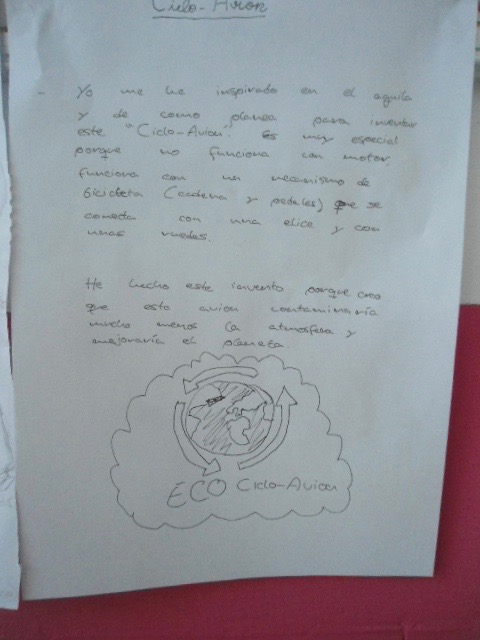 Ciclo-Avion
- Yo me he inspirado en el aguila
y de como planea para inventar
este "Ciclo-Avion". Es muy especial
porque no funciona con motor,
funciona con un mecanismo de
bicicleta (cadena y pedales) que se
conecta con una elice y con
unas ruedas.
He hecho este invento porque creo
que esto avion contaminaría
mucho menos la atmosfera y
mejoraría el planeta.
ECO Ciclo-Avion